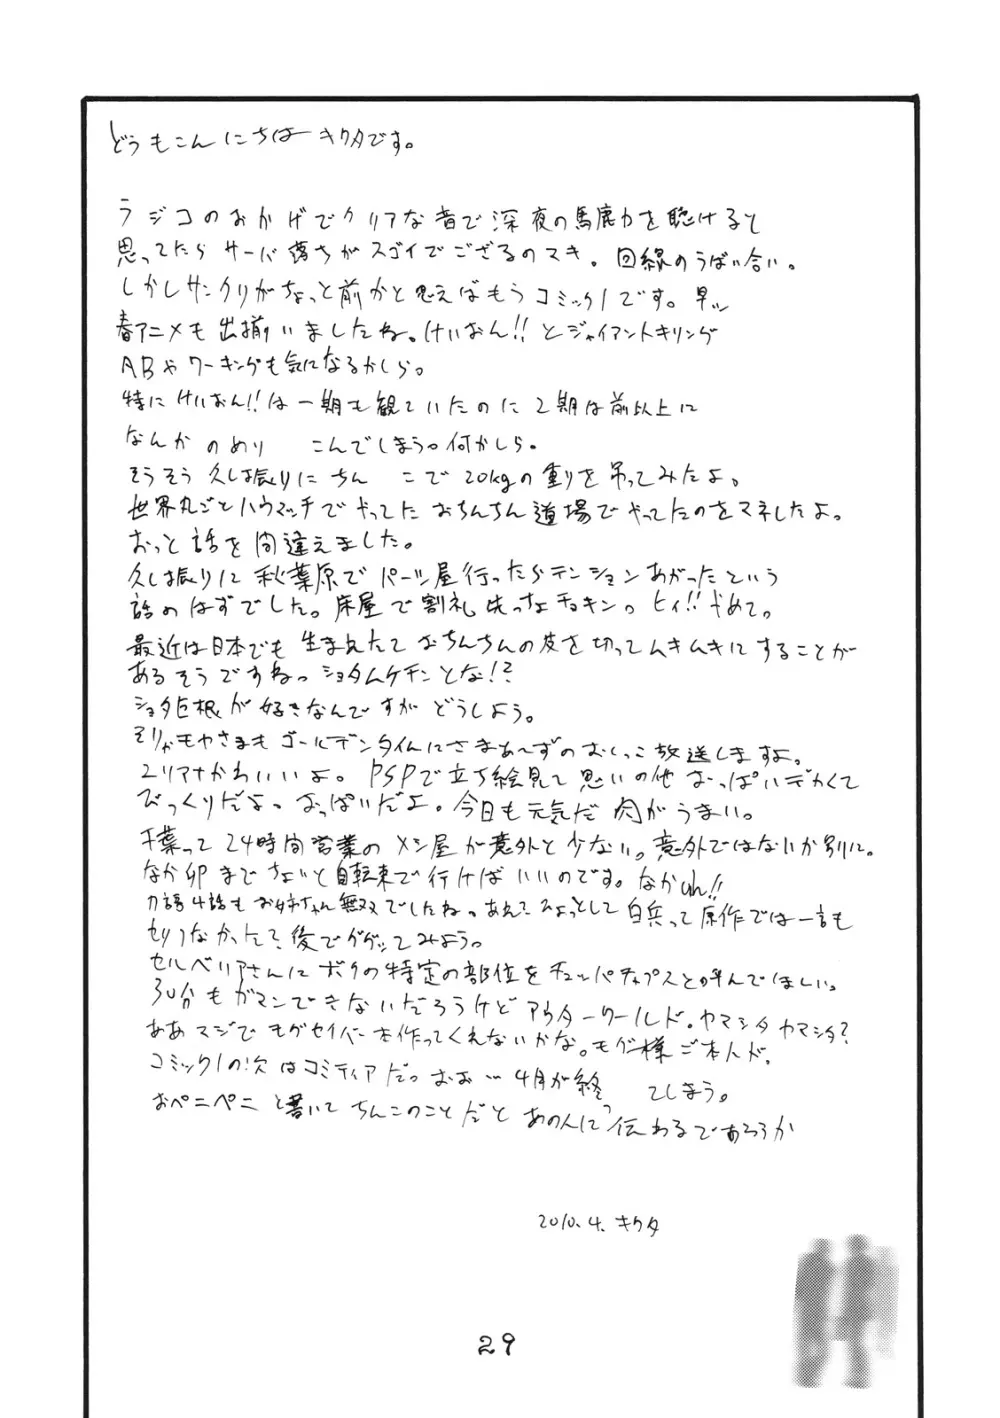 どうもこんにちは キクタです。
ラジコのおかげでクリアな音で深夜の馬鹿力を聴けると
思ってたら サーバ落ちがスゴイでござるのマキ。回線のうばい合い。
しかしサンクリがちょっと前かと思えばもうコミック1です。早ッ
春アニメも出揃いましたね。けいおん!!とジャイアントキリング
ABやワーキングも気になるかしら。
特にけいおん!!は一期も観ていたのに2期は前以上に
なんか のめり こんでしまう。何かしら。
そうそう 久し振りに ちん こで 20kgの重りを吊ってみたよ。
世界丸ごとハウマッチでやってた おちんちん道場でやってたのをマネしたよ。
おっと話を間違えました。
久し振りに 秋葉原でパーツ屋行ったらテンションあがったという
話のはずでした。床屋で割礼 先っちょチョキン。ヒィ!!やめて。
ユリアナかわいいよ。PSPで立ち絵見て思いの他おっぱいデカくて
びっくりだよ。おっぱいだよ。今日も元気だ 肉がうまい。
千葉って24時間営業のメシ屋が意外と少ない。意外ではないか別に。
なか卯までちょいと自転車で行けばいいのです。なかう!!
刀語4話もお姉ちゃん無双でしたね。あれ?ひょっとして白兵って原作では一言も
セリフなかったて?後でググッてみよう。
セルベリアさんにボクの特定の部位をチュッパチャップスと呼んでほしい。
30分もガマンできないだろうけど アウターワールド。ヤマシタ ヤマシタ?
ああ マジで モゲセイバー本作ってくれないかな。モゲ様ご本人が。
コミック1の次はコミティアだっ おお… 4月が終 てしまう。
おペニペニ と書いて ちんこのことだと あの人に 伝わるであろうか
2010.4. キクタ
29